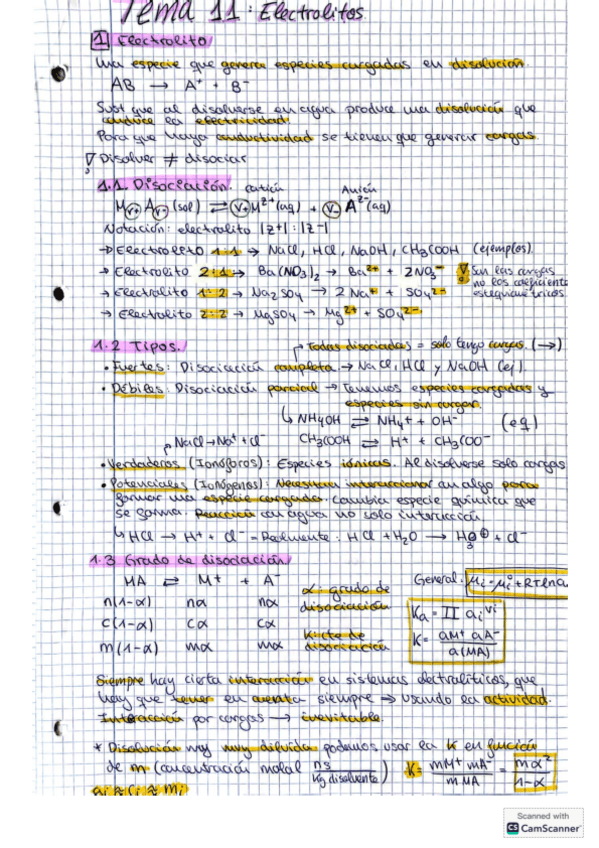 Tema 11: Electrolitos
1 Electrolito
una especie que genera especies cargadas en disolución.
AB → A⁺ + B⁻
Sust que al disolverse en agua produce una disolución que
conduce la electricidad.
Para que haya conductividad se tienen que generar cargas.
Disolver ≠ disociar
1.1. Disociación. catión Anión
Mν+ Aν- (sol) ⇌ ν+ M^z+ (aq) + ν- A^z- (aq)
Notación: electrolito |z+| : |z-|
→ Electrolito 1:1 → NaCl, HCl, NaOH, CH₃COOH (ejemplos).
→ Electrolito 2:1 → Ba(NO₃)₂ → Ba²⁺ + 2NO₃⁻ Son las cargas
no los coeficientes
→ Electrolito 1:2 → Na₂SO₄ → 2Na⁺ + SO₄²⁻ estequiométricos
→ Electrolito 2:2 → MgSO₄ → Mg²⁺ + SO₄²⁻
1.2 Tipos. → Todas disociadas = solo tengo cargas. (→)
• Fuertes: Disociación completa → NaCl, HCl y NaOH (ej).
• Débiles: Disociación parcial → Tenemos especies cargadas y
especies sin cargar.
↳ NH₄OH ⇌ NH₄⁺ + OH⁻ (eq)
NaCl → Na⁺ + Cl⁻ CH₃COOH ⇌ H⁺ + CH₃COO⁻
• Verdaderos (Ionóforos): Especies iónicas. Al disolverse solo cargas
• Potenciales (Ionógenos): Necesitan interaccionar con algo para
formar una especie cargada. Cambia especie química que
se forma. Reacción con agua no solo interacción
↳ HCl → H⁺ + Cl⁻ = Realmente: HCl + H₂O → H₃O⁺ + Cl⁻
1.3 Grado de disociación
MA ⇌ M⁺ + A⁻ α: grado de disociación General: μi = μi° + RTlna
n(1-α) nα nα Ka = Π ai^νi
c(1-α) cα cα K: cte de disociación K = aM⁺ aA⁻ / a(MA)
m(1-α) mα mα
Siempre hay cierta interacción en sistemas electrolíticos, que
hay que tener en cuenta siempre → usando la actividad.
Interacción por cargas → inevitable.
* Disolución muy muy diluida podemos usar la K en función
de m (concentración molal ns / Kg disolvente) K = mM⁺ mA⁻ / mMA = mα² / 1-α
ai ≈ ci ≈ mi
Scanned with
CS CamScanner